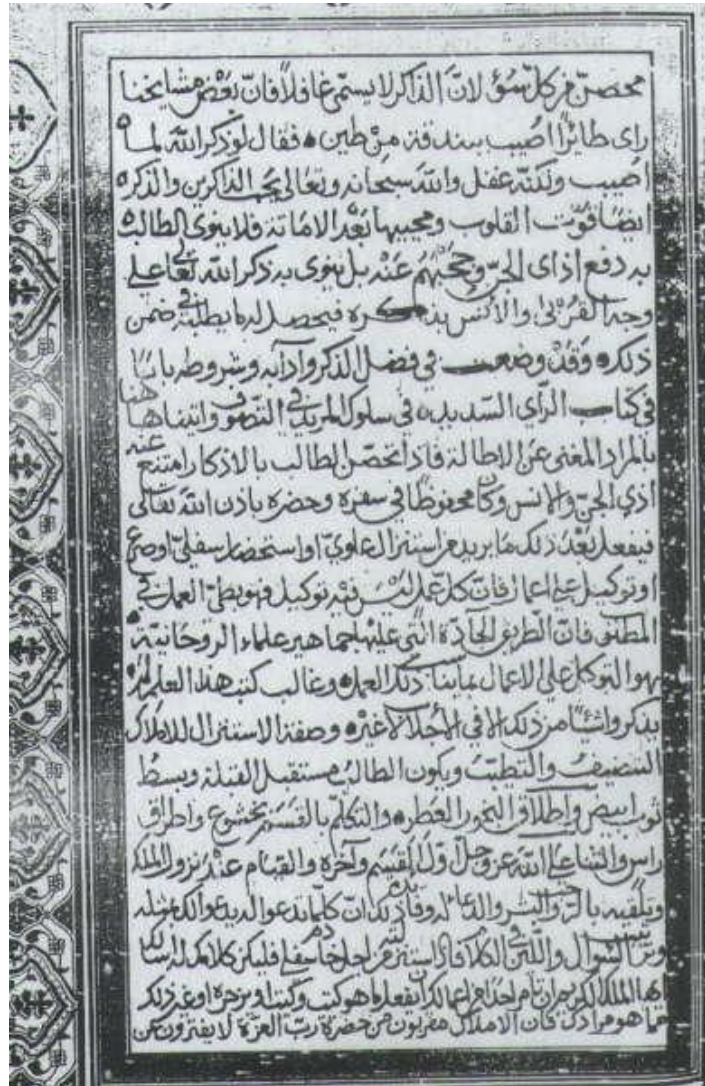 محصن من كل سوء لان الذاكر لا يسمى غافلا فان بعض مشايخنا
راى طايرا اصيب ببندقة من طين فقال لو ذكر الله لما
اصيب ولكنه غفل والله سبحانه وتعالى يحب الذاكرين والذكر
ايضا قوت القلوب ومحييها بعد الاماتة فلا ينوى الطالب
به دفع اذاى الجن وحجبهم عنه بل ينوى به ذكر الله تعالى على
وجه القربى والانس بذكره فيحصل له ما يطلبه في ضمن
ذلك وقد وضعت في فضل الذكر وادابه وشروطه بابا
في كتاب الراى السديد في سلوك المريد في التصوف واتينا هنا
بالمراد المغنى عن الاطالة فاذا تحصن الطالب بالاذكار امتنع عنه
اذى الجن والانس وكان محفوظا في سفره وحضره باذن الله تعالى
فيفعل بعد ذلك ما يريد من استنزال علوي او استحضار سفلي او صرع
او توكيل على اعمال فان كل عمل ليس فيه توكيل فهو بطئ العمل في
المطلق فان الطريق الجادة التي عليها جماهير علماء الروحانية
هو التوكل على الاعمال ذلك العمل وغالب كتب هذا العلم لم
يذكروا شيا من ذلك الا في الاجلاب لا غير وصفة الاستنزال للاملاك
التنضيف والتطيب ويكون الطالب مستقبل القبلة وبسط
ثوب ابيض واطلاق البخور العطره والتكلم بالقسم بخشوع واطراق
راس والثنا على الله عز وجل اول القسم وآخره والقيام عند نزول الملك
وتلقيه بالرحب والبشر والدعا له وذلك ان كلما تدعو الملك يدعو لك بمثله
السوال واللين في الكلام فاذا استنزلته من اجل خادم فليكن كلامك له اسالك
ايها الملك الكريم ان تامر احدا من اعمالك ان يفعل ما هو كيت وكيت او يزجره او غير ذلك
مما هو مرادك فان الاملاك مقربون من حضرة رب العزة لا يفترون عن